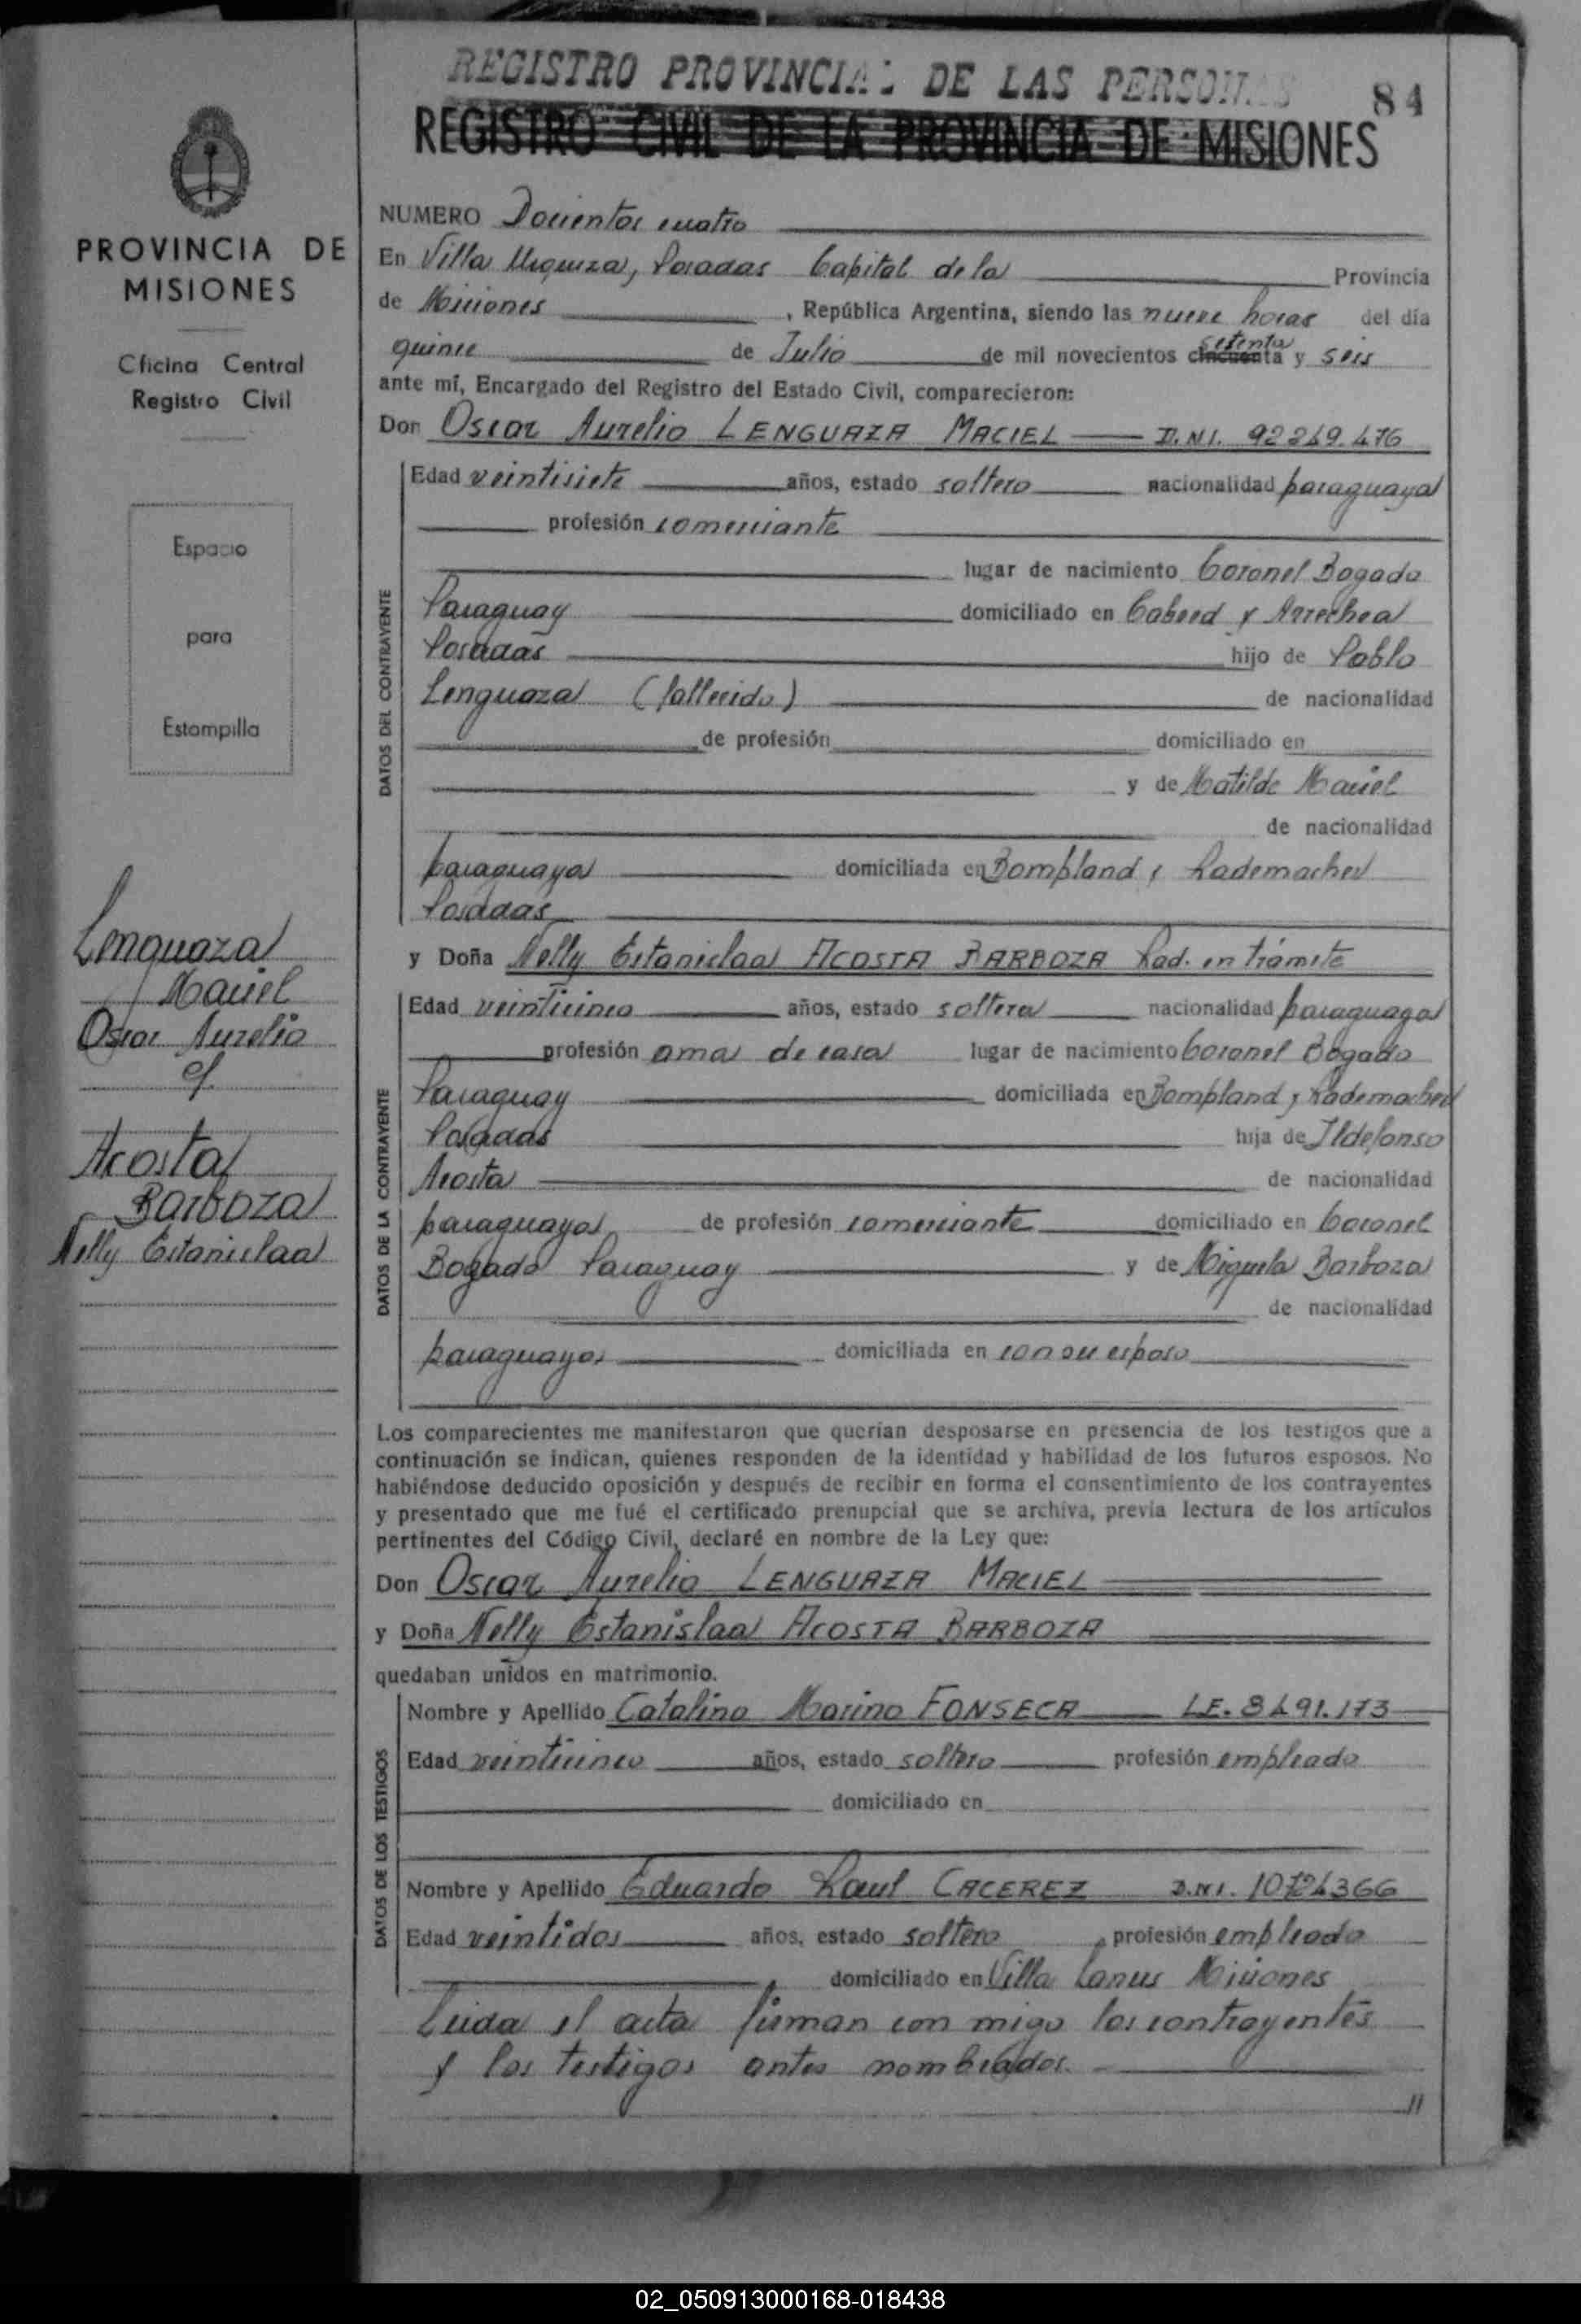 REGISTRO PROVINCIAL DE LAS PERSONAS
84
REGISTRO CIVIL DE LA PROVINCIA DE MISIONES
PROVINCIA DE
MISIONES
Oficina Central
Registro Civil
Espacio
para
Estampilla
Lenguaza
Maciel
Oscar Aurelio
c/
Acosta
Barboza
Nelly Estanislaa
NUMERO Doscientos cuatro
En Villa Urquiza, Posadas Capital de la Provincia
de Misiones , República Argentina, siendo las nueve horas del día
quince de Julio de mil novecientos cincuenta setenta y seis
ante mí, Encargado del Registro del Estado Civil, comparecieron:
Don Oscar Aurelio LENGUAZA MACIEL D.N.I. 92249.476
DATOS DEL CONTRAYENTE
Edad veintisiete años, estado soltero nacionalidad paraguaya
profesión comerciante
lugar de nacimiento Coronel Bogado
Paraguay domiciliado en Cabred y Arrechea
Posadas hijo de Pablo
Lenguaza (fallecido) de nacionalidad
de profesión domiciliado en
y de Matilde Maciel
de nacionalidad
paraguaya domiciliada en Bompland y Rademacher
Posadas
y Doña Nelly Estanislaa ACOSTA BARBOZA Rad. en trámite
DATOS DE LA CONTRAYENTE
Edad veinticinco años, estado soltera nacionalidad paraguaya
profesión ama de casa lugar de nacimiento Coronel Bogado
Paraguay domiciliada en Bompland y Rademacher
Posadas hija de Ildefonso
Acosta de nacionalidad
paraguaya de profesión comerciante domiciliado en Coronel
Bogado Paraguay y de Miguela Barboza
de nacionalidad
paraguaya domiciliada en con su esposo
Los comparecientes me manifestaron que querían desposarse en presencia de los testigos que a
continuación se indican, quienes responden de la identidad y habilidad de los futuros esposos. No
habiéndose deducido oposición y después de recibir en forma el consentimiento de los contrayentes
y presentado que me fué el certificado prenupcial que se archiva, previa lectura de los artículos
pertinentes del Código Civil, declaré en nombre de la Ley que:
Don Oscar Aurelio LENGUAZA MACIEL
y Doña Nelly Estanislaa ACOSTA BARBOZA
quedaban unidos en matrimonio.
DATOS DE LOS TESTIGOS
Nombre y Apellido Catalino Marino FONSECA LE. 8491.173
Edad veinticinco años, estado soltero profesión empleado
domiciliado en
Nombre y Apellido Eduardo Raul CACEREZ D.N.I. 10724366
Edad veintidos años, estado soltero profesión empleado
domiciliado en Villa Lanus Misiones
Leida el acta firman con migo los contrayentes
y los testigos antes nombrados.
//
02_050913000168-018438